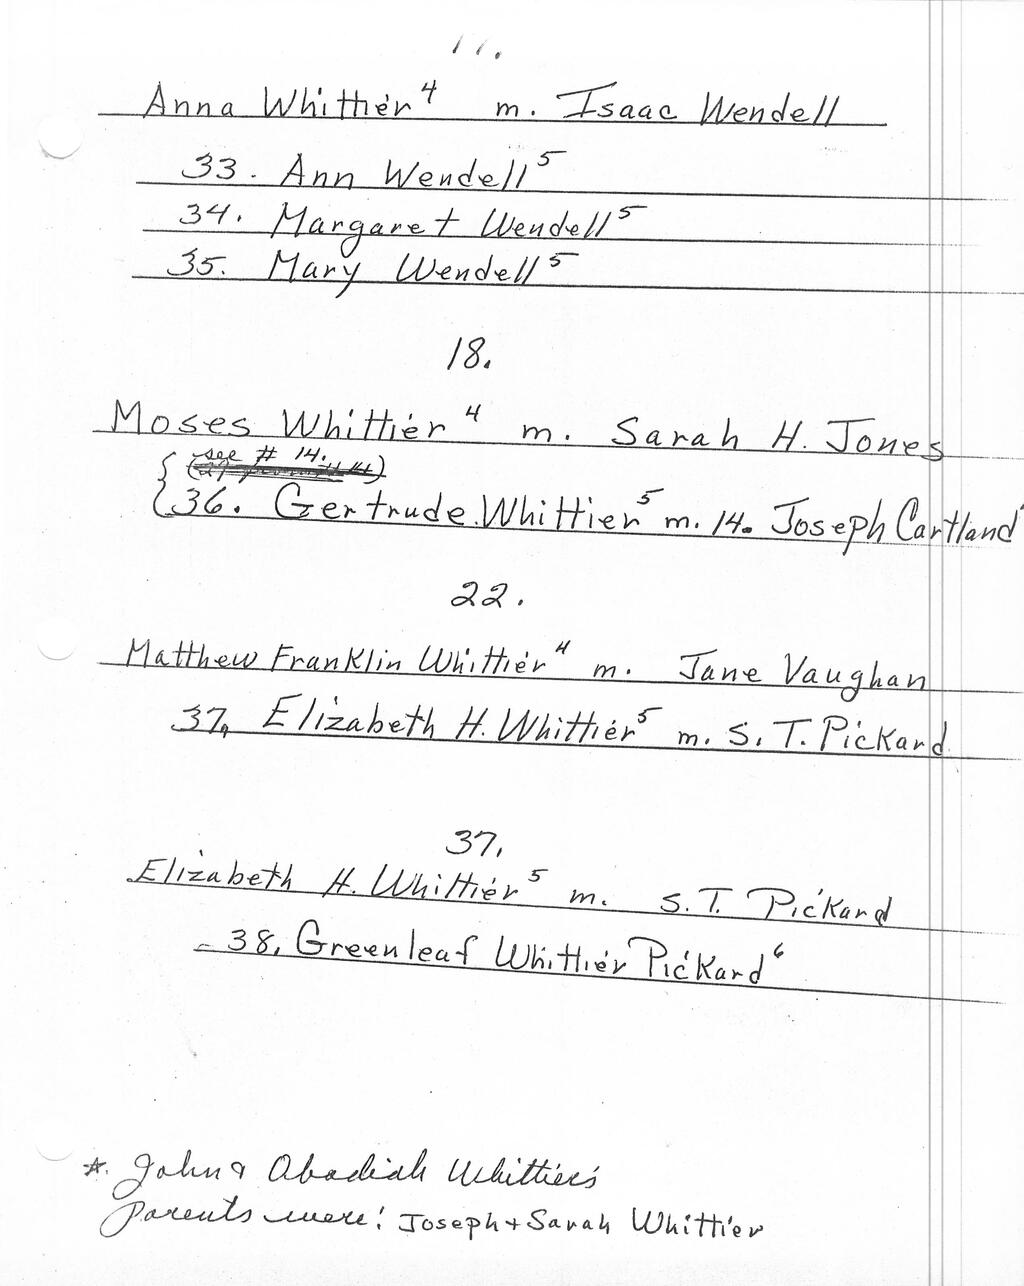 17.
Anna Whittier⁴ m. Isaac Wendell
33. Ann Wendell⁵
34. Margaret Wendell⁵
35. Mary Wendell⁵
18.
Moses Whittier⁴ m. Sarah H. Jones
(see # 14.)
36. Gertrude Whittier⁵ m. 14. Joseph Cartland
22.
Matthew Franklin Whittier⁴ m. Jane Vaughan
37. Elizabeth H. Whittier⁵ m. S. T. Pickard
37.
Elizabeth H. Whittier⁵ m. S. T. Pickard
38. Greenleaf Whittier Pickard⁶
*. John & Obadiah Whittier's
parents were: Joseph + Sarah Whittier